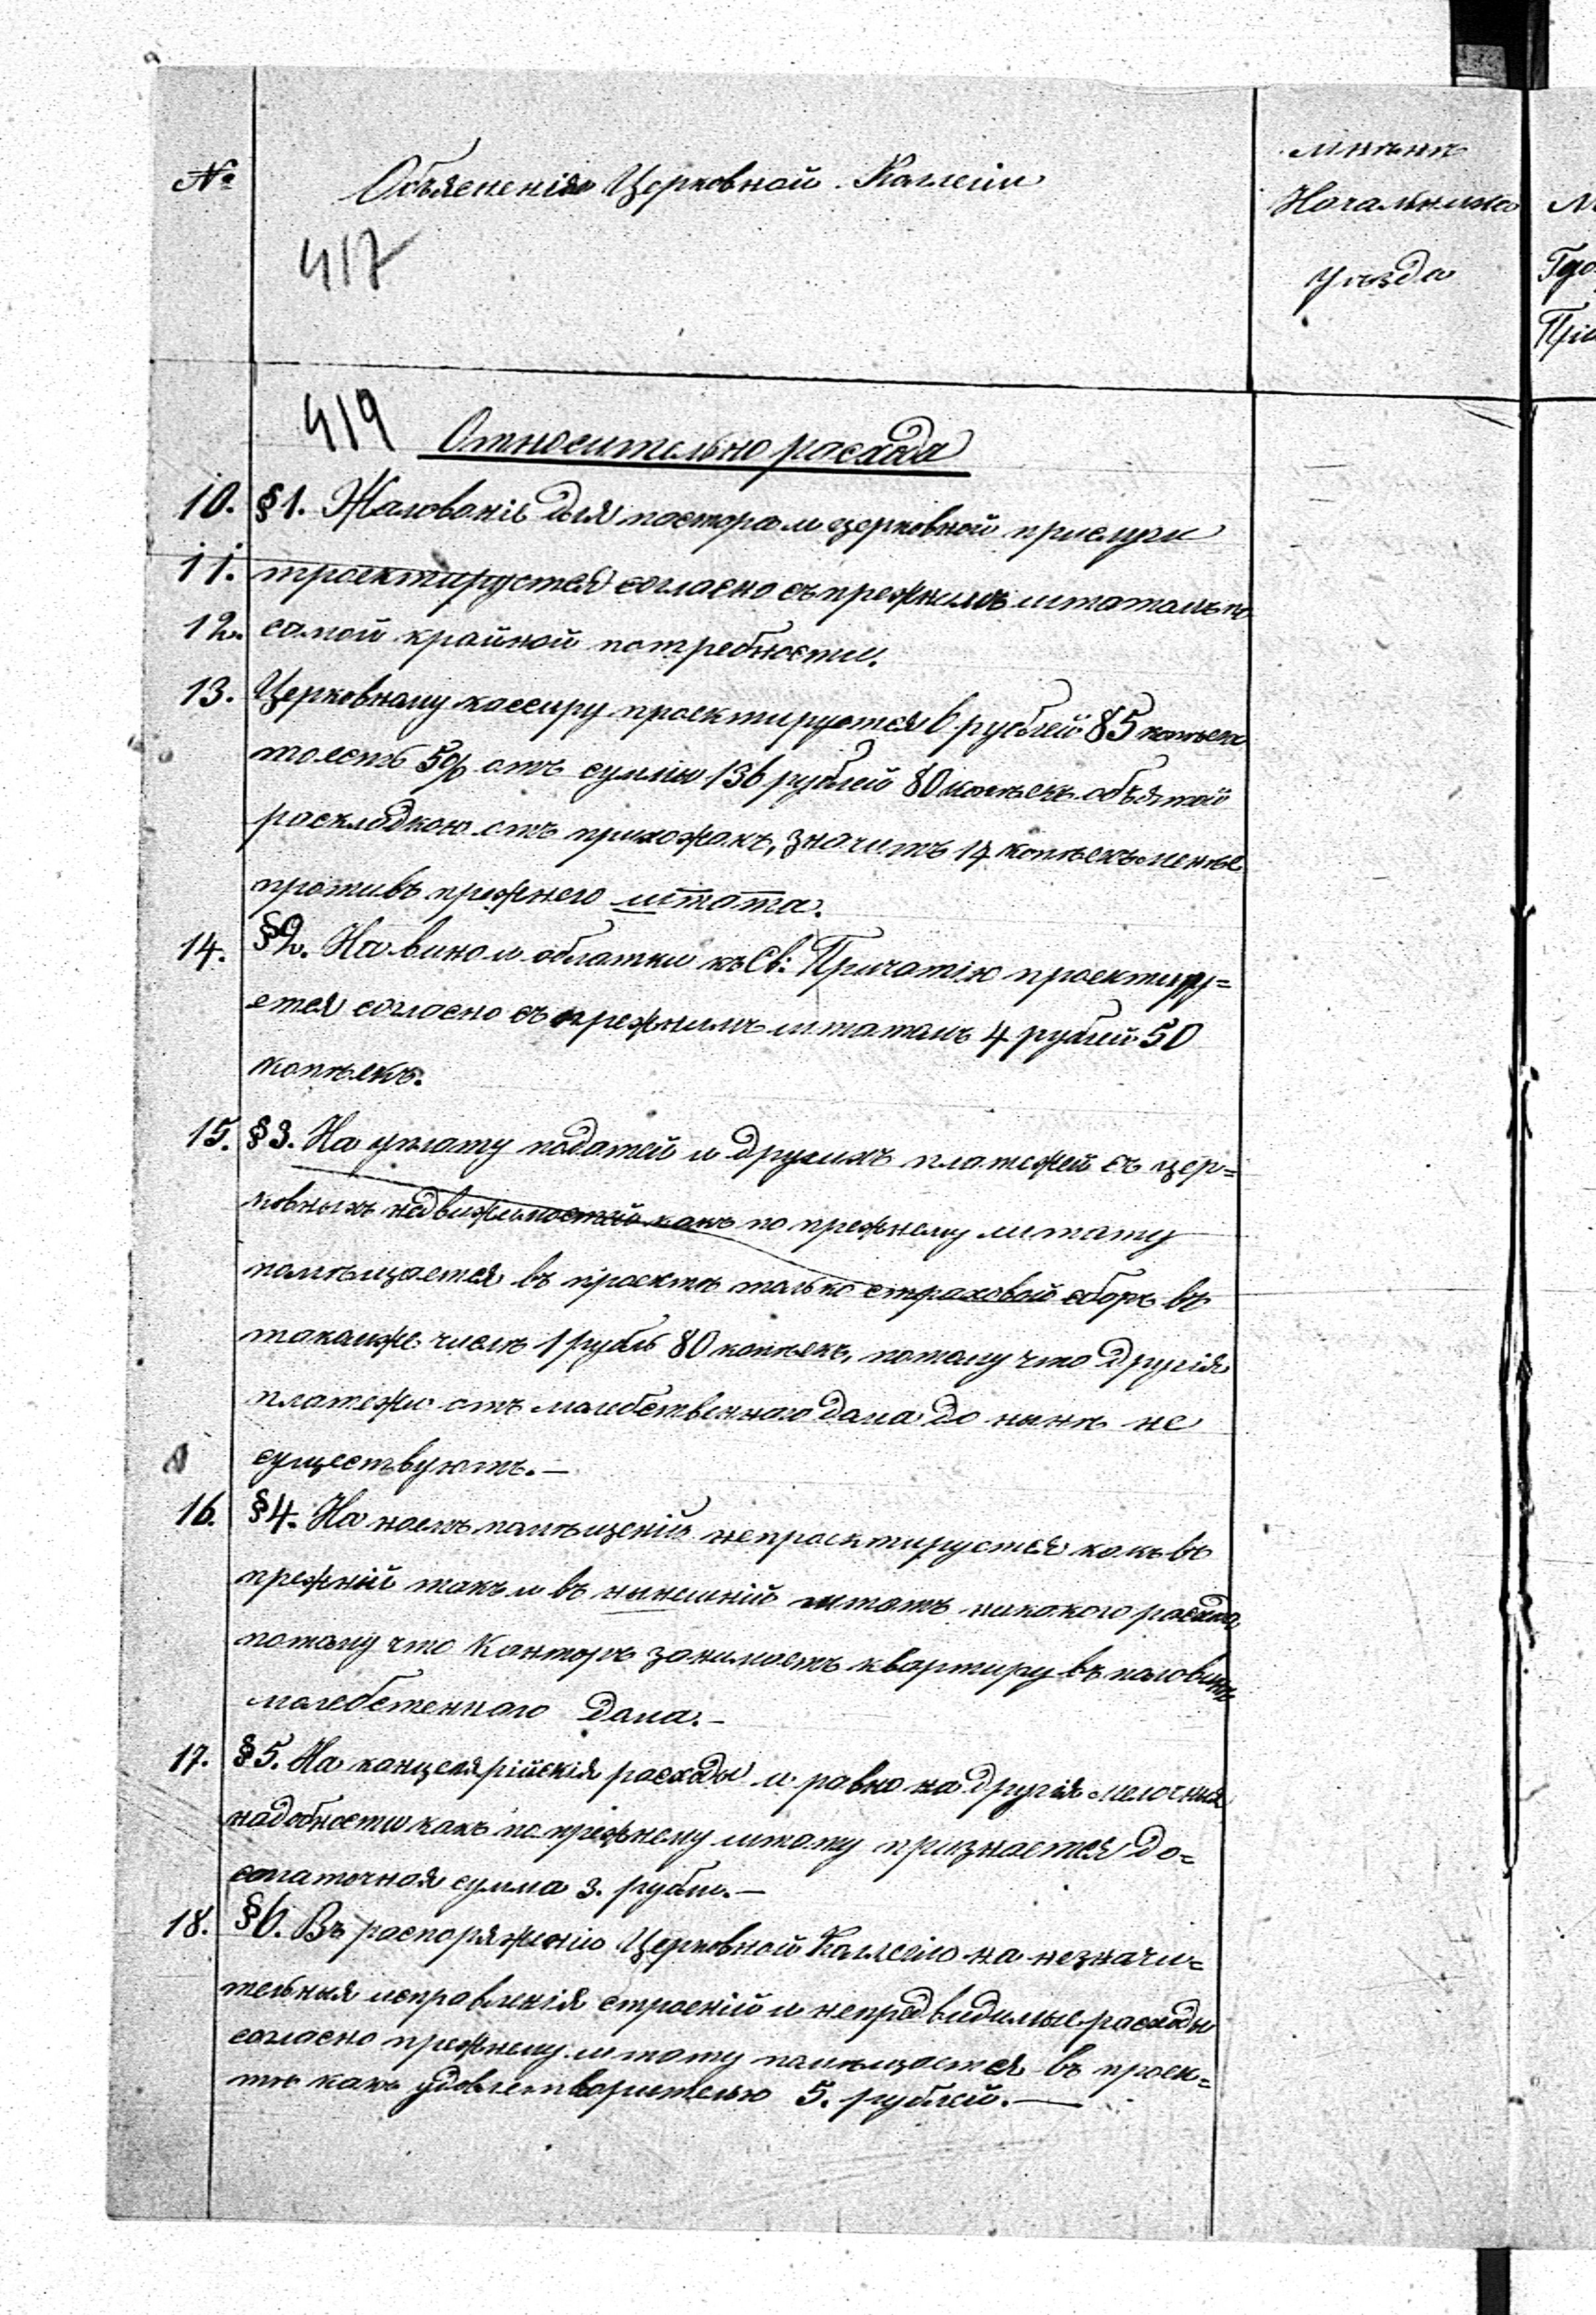 №
Объясненія Церковной Коллегіи
мнѣнія
Начальника
Уѣзда
417
419 Относительно расхода
10. §1. Жалованіе для пастора и церковной прислуги
11. проектируется согласно съ прежнимъ штатомъ по
12. самой крайной потребности.
13. Церковному кассиру проектируется 6 рублей 85 копѣекъ
тоесть 5% отъ суммы 136 рублей 80 копѣекъ объятой
раскладкою отъ прихожанъ, значитъ 14 копѣекъ менѣе
противъ прежнего штата.
14. §2. На вино и облатки къ Св: Причатію проектиру=
ется согласно съ прежнимъ штатомъ 4 рублей 50
копѣекъ.
15. §3. На уплату податей и другихъ платежей съ цер=
ковныхъ недвижимостей какъ по прежнему штату
помѣщается въ проектѣ только страховой сборъ въ
такомже числѣ 1 рубль 80 копѣекъ, потому что другія
платежи отъ молебственнаго дома до нынѣ не
существуютъ.—
16. §4. На наемъ помѣщенія непроектируется какъ въ
прежній такъ и въ нынешній штатъ никакого расхода
потому что Канторъ занимаетъ квартиру въ половинѣ
молебстеннаго дома.—
17. §5. На канцелярійскія расходы и равно на другія мелочныя
надобности какъ по прежнему штату признается до=
статочная сумма 3. рубли.—
18. §6. Въ распоряженію Церковной Коллегію на незначи=
тельныя исправленія строеній и непредвидимые расходы
согласно прежнему штату помѣщается въ проек=
тѣ какъ удовлетворителью 5. рублей.—